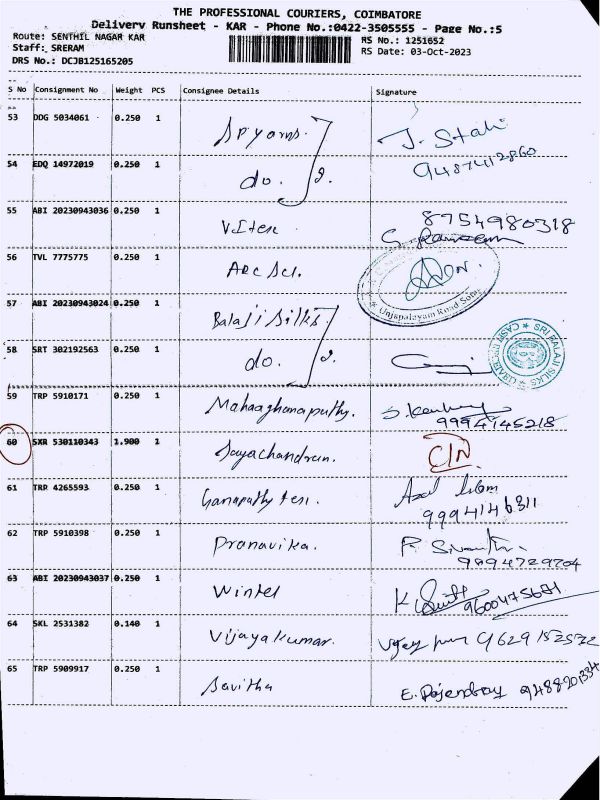 THE PROFESSIONAL COURIERS, COIMBATORE
Delivery Runsheet - KAR - Phone No.:0422-3505555 - Page No.:5
Route: SENTHIL NAGAR KAR
RS No.: 1251652
Staff: SRERAM
RS Date: 03-Oct-2023
DRS No.: DCJB125165205
S No Consignment No Weight PCS Consignee Details Signature
53 DDG 5034061 0.250 1
9487412860
54 EDQ 14972019 0.250 1 do.
8754980318
55 ABI 20230943036 0.250 1
56 TVL 7775775 0.250 1
Unjapalayam Road
57 ABI 20230943024 0.250 1 Balaji Silks
58 SRT 302192563 0.250 1 do.
SRI BALAJI SILKS
59 TRP 5910171 0.250 1
9994745218
60 SXR 530110343 1.900 1 Jayachandran.
61 TRP 4265593 0.250 1 Ganapathy
9994146311
62 TRP 5910398 0.250 1 Pranavika.
9894729704
63 ABI 20230943037 0.250 1 Wintel 9600475681
64 SKL 2531382 0.140 1 Vijayakumar.
65 TRP 5909917 0.250 1 Savitha